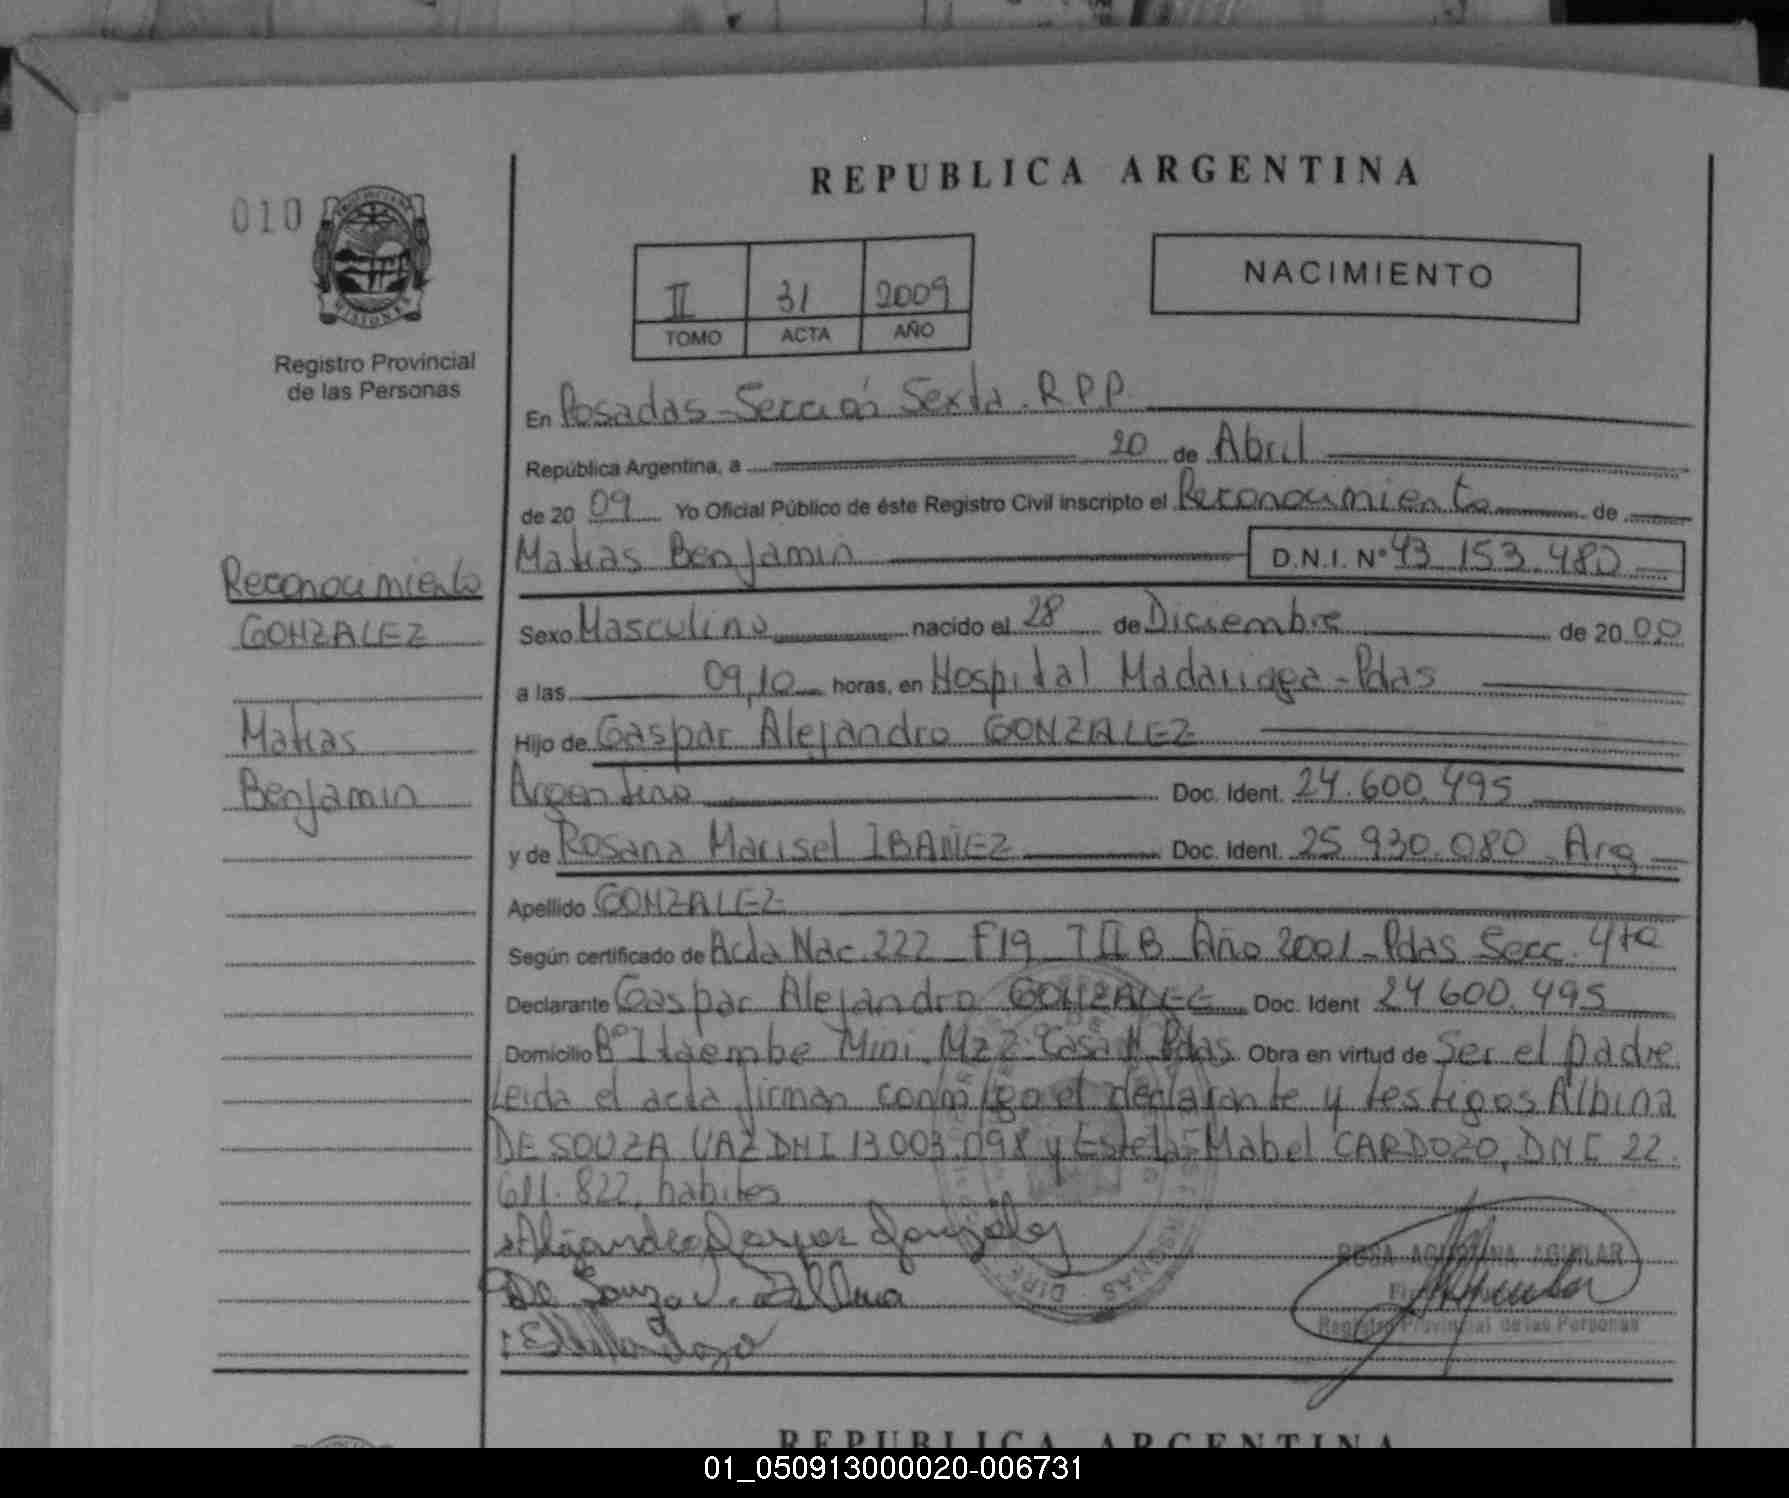 REPUBLICA ARGENTINA
010
NACIMIENTO
II 31 2009
TOMO ACTA AÑO
Registro Provincial
de las Personas
En Posadas-Sección Sexta. R.P.P.
República Argentina, a 20 de Abril
de 20 09 Yo Oficial Público de éste Registro Civil inscripto el Reconocimiento de
Matias Benjamin D.N.I. N° 43.153.480
Reconocimiento
GONZALEZ
Matias
Benjamin
Sexo Masculino nacido el 28 de Diciembre de 20 00
a las 09,10 horas, en Hospital Madariaga-Pdas
Hijo de Gaspar Alejandro GONZALEZ
Argentino Doc. Ident. 24.600.495
y de Rosana Marisel IBAÑEZ Doc. Ident. 25.930.080 Arg
Apellido GONZALEZ
Según certificado de Acta Nac. 222 F19 T II B Año 2001-Pdas Secc. 4ta
Declarante Gaspar Alejandro GONZALEZ Doc. Ident 24.600.495
Domicilio B° Itaembe Mini. Mz 2 Casa Pdas. Obra en virtud de Ser el padre
Leida el acta firman conmigo el declarante y testigos Albina
DE SOUZA VAZ DNI 13.003.098 y Estela Mabel CARDOZO, DNI 22.
611.822, habiles
Alejandro Gaspar González
De Souza V. Albina
ROSA AGUSTINA AGUILAR
Registro Provincial de las Personas
REPUBLICA ARGENTINA
01_050913000020-006731